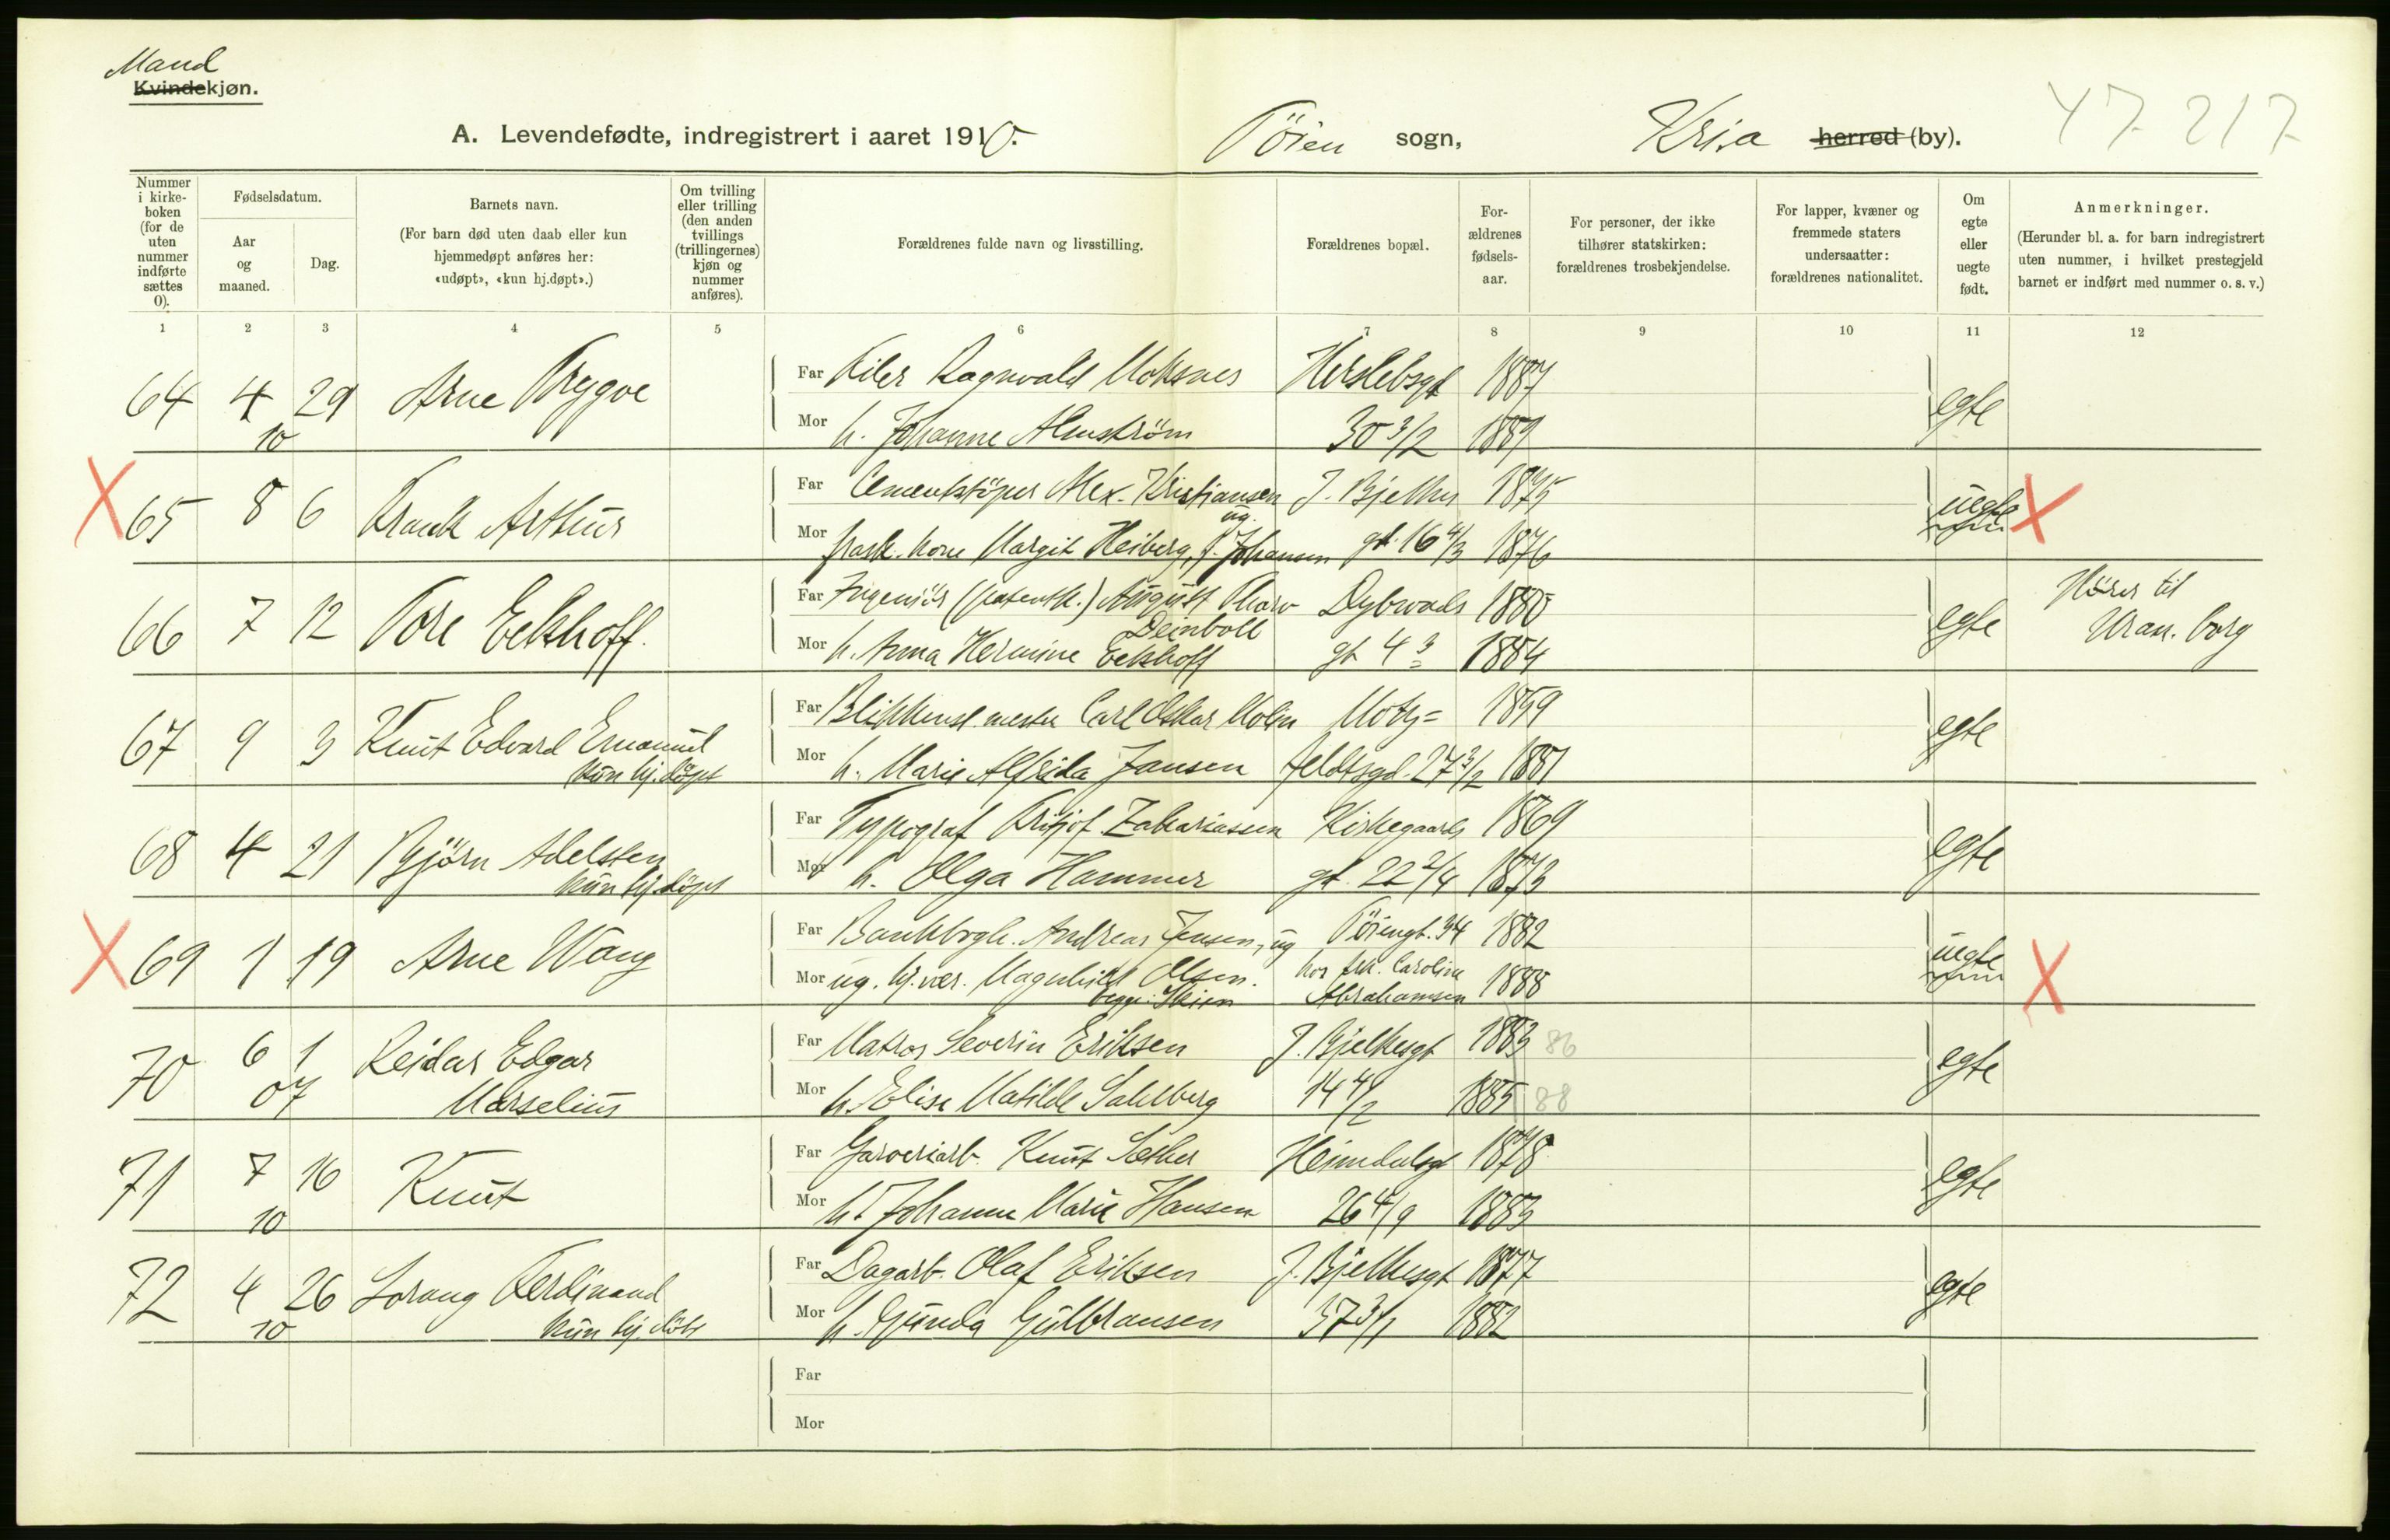 Mand
Kvindekjøn.
A. Levendefødte, indregistrert i aaret 1910. Töien sogn, Kr.a herred (by). 47 217
Nummer i kirke-boken (for de uten nummer indførte sættes 0).
Fødselsdatum.
Aar og maaned.
Dag.
Barnets navn.
(For barn død uten daab eller kun hjemmedøpt anføres her: «udøpt», «kun hj.døpt».)
Om tvilling eller trilling (den anden tvillings (trillingernes) kjøn og nummer anføres).
Forældrenes fulde navn og livsstilling.
Forældrenes bopæl.
For-ældrenes fødsels-aar.
For personer, der ikke tilhører statskirken: forældrenes trosbekjendelse.
For lapper, kvæner og fremmede staters undersaatter: forældrenes nationalitet.
Om egte eller uegte født.
Anmerkninger.
(Herunder bl. a. for barn indregistrert uten nummer, i hvilket prestegjeld barnet er indført med nummer o. s. v.)
1 2 3 4 5 6 7 8 9 10 11 12
64 4 29 Arne Trygve Far Filer Ragnvald Moksnes Herslebsgt 1887 egte
10 Mor h. Johanne Almström 30 3/2 1889
X 65 8 6 Frank Arthur Far Cementstöper Alex. Kristiansen J. Bjelkes 1875 uegte X
ug.
Mor frask. kone Margit Heiberg, f. Johansen gt. 16 4/3 1876
66 7 12 Tore Eckhoff. Far Ingeniör (patentk.) August Tharv Dybwads 1880 egte Hörer til
Deinboll
Mor h. Anna Hermine Eckhoff gt 4 3 1884 Uran.borg
67 9 3 Knut Edvard Emanuel Far Blikkensl.mester Carl Oskar Molin Motz= 1859 egte
kun hj.döpt Mor h. Marie Alfrida Jansen feldtsgd. 27 3/2 1881
68 4 21 Björn Adelsten Far Typograf Fritjof Zakariassen Kirkegaards 1869 egte
kun hj.döpt Mor h. Olga Hammer gt. 22 2/4 1873
X 69 1 19 Arne Wang Far Bankbogh. Andreas Jensen, ug Töiengt. 34 1882 uegte X
Mor ug. hj.vær. Magnhild Olsen. hos frk. Caroline 1888
begge: Skien Abrahamsen
70 6 1 Reidar Edgar Far Matros Severin Eriksen J. Bjelkesgt 1883 86 egte
07 Marselius Mor h. Elise Matilde Sahlberg 14 4/2 1885 88
71 7 16 Knut Far Garveriarb. Knut Sæther Heimdalsgt 1878 egte
10 Mor h. Johanne Marie Hansen 26 4/9 1883
72 4 26 Lorang Ferdinand Far Dagarb. Olaf Eriksen J. Bjelkesgt 1877 egte
10 kun hj.döbt Mor h. Gunda Gulbransen 37 3/1 1882
Far
Mor